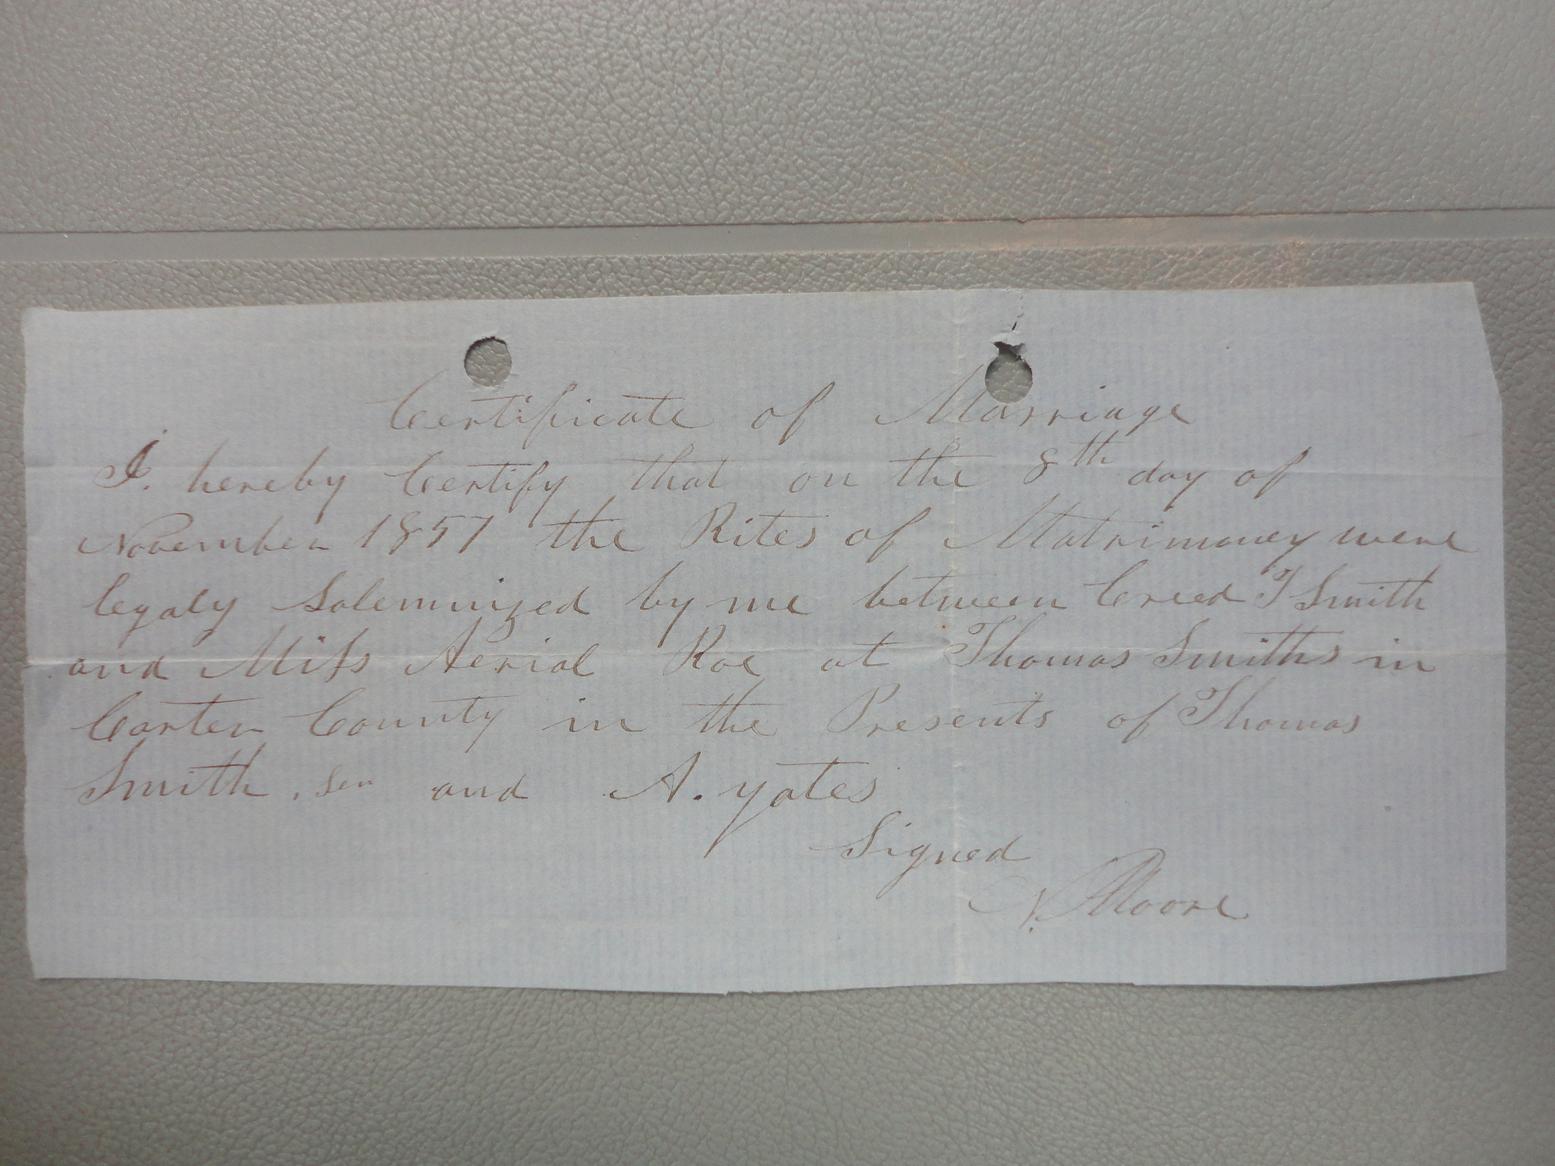 Certificate of Marriage
I. hereby Certify that on the 8th day of
November 1857 the Rites of Matrimoney were
legaly Solemnized by me between Creed T Smith
and Miss Aerial Roe at Thomas Smiths in
Carter County in the Presents of Thomas
Smith, Sen and A. yates
Signed
N. Moore